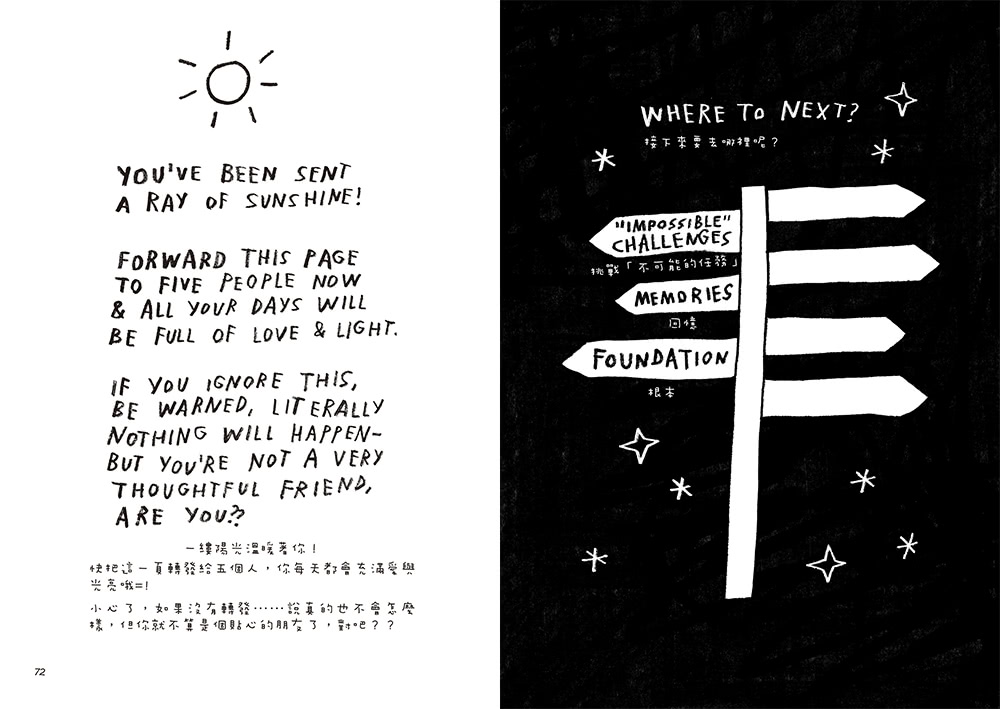 YOU'VE BEEN SENT
A RAY OF SUNSHINE!
FORWARD THIS PAGE
TO FIVE PEOPLE NOW
& ALL YOUR DAYS WILL
BE FULL OF LOVE & LIGHT.
IF YOU IGNORE THIS,
BE WARNED, LITERALLY
NOTHING WILL HAPPEN–
BUT YOU'RE NOT A VERY
THOUGHTFUL FRIEND,
ARE YOU??
一縷陽光溫暖著你！
快把這一頁轉發給五個人，你每天都會充滿愛與
光亮哦=!
小心了，如果沒有轉發⋯⋯說真的也不會怎麼
樣，但你就不算是個貼心的朋友了，對吧？？
72
WHERE TO NEXT?
接下來要去哪裡呢？
"IMPOSSIBLE"
CHALLENGES
挑戰「不可能的任務」
MEMORIES
回憶
FOUNDATION
根本